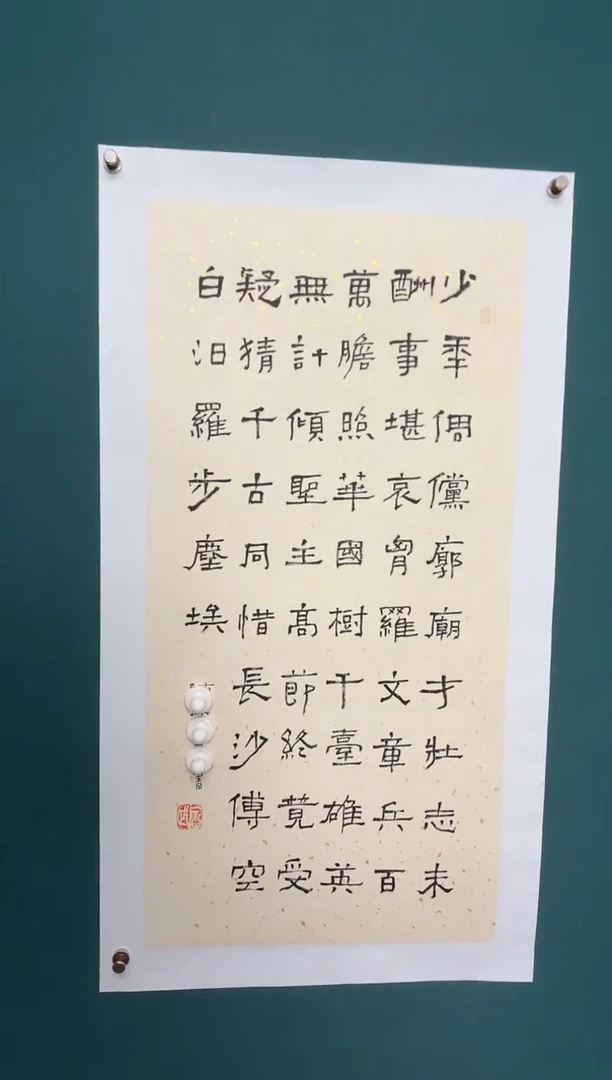 少秊倜儻廓廟才壯志未
酬事堪哀胷羅文章兵百
萬膽照華國樹千臺雄英
無計傾聖主高節終竟受
疑猜千古同惜長沙傅空
白汨羅步塵埃